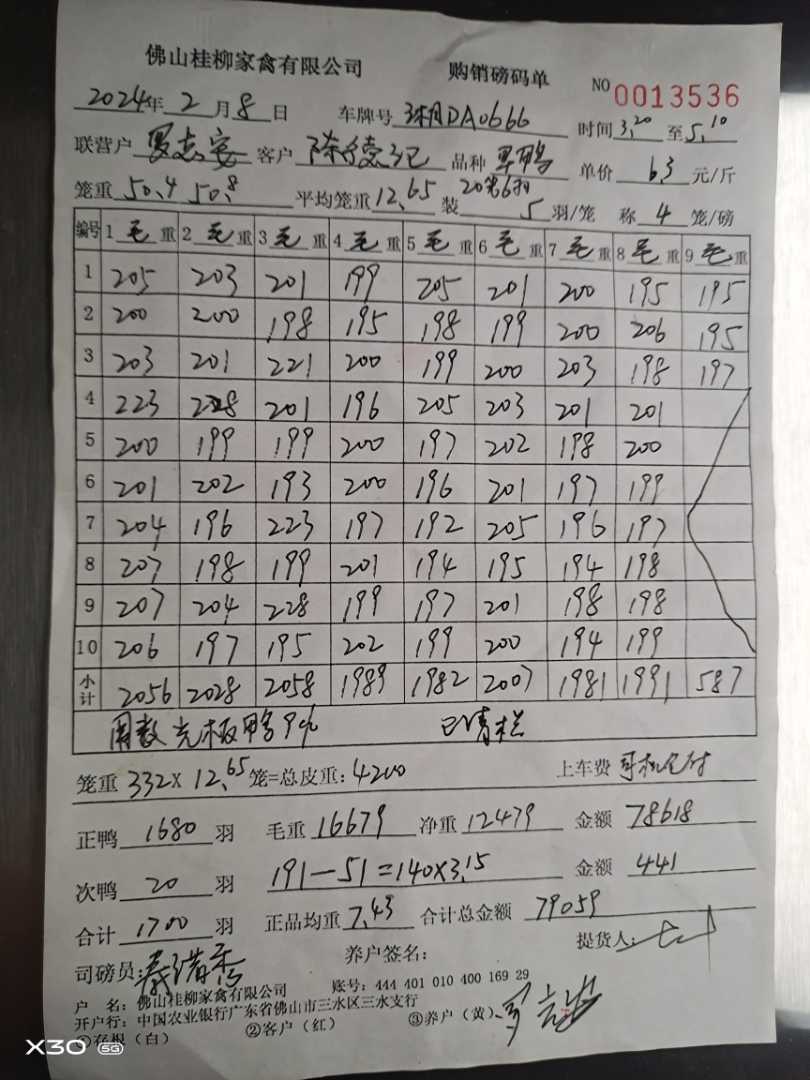 佛山桂柳家禽有限公司 购销磅码单 NO 0013536
2024年 2 月 8 日 车牌号 DA0666 时间 3.20 至 5.10
联营户 罗志安 客户 陈德记 品种 黑鸭 单价 6.3 元/斤
笼重 50.4 50.8 平均笼重 12.65 装 20笼6羽 5 羽/笼 称 4 笼/磅
编号 1 毛 重 2 毛 重 3 毛 重 4 毛 重 5 毛 重 6 毛 重 7 毛 重 8 毛 重 9 毛 重
1 205 203 201 199 205 201 200 195 195
2 200 200 198 195 198 199 200 206 195
3 203 201 221 200 199 200 203 198 197
4 223 228 201 196 205 203 201 201
5 200 199 199 200 197 202 198 200
6 201 202 193 200 196 201 197 199
7 204 196 223 197 192 205 196 197
8 207 198 199 201 194 195 194 198
9 207 204 228 199 197 201 198 198
10 206 197 195 202 199 200 194 199
小计 2056 2028 2058 1989 1982 2007 1981 1991 587
板鸭 已清栏
笼重 332× 12.65 笼=总皮重: 4200 上车费 司机
正鸭 1680 羽 毛重 16679 净重 12479 金额 78618
次鸭 20 羽 191-51=140×3.15 金额 441
合计 1700 羽 正品均重 7.43 合计总金额 79059
司磅员: 养户签名: 提货人:
户 名: 佛山桂柳家禽有限公司 账号: 444 401 010 400 169 29
开户行: 中国农业银行广东省佛山市三水区三水支行
①存根(白) ②客户(红) ③养户(黄)
X30 5G